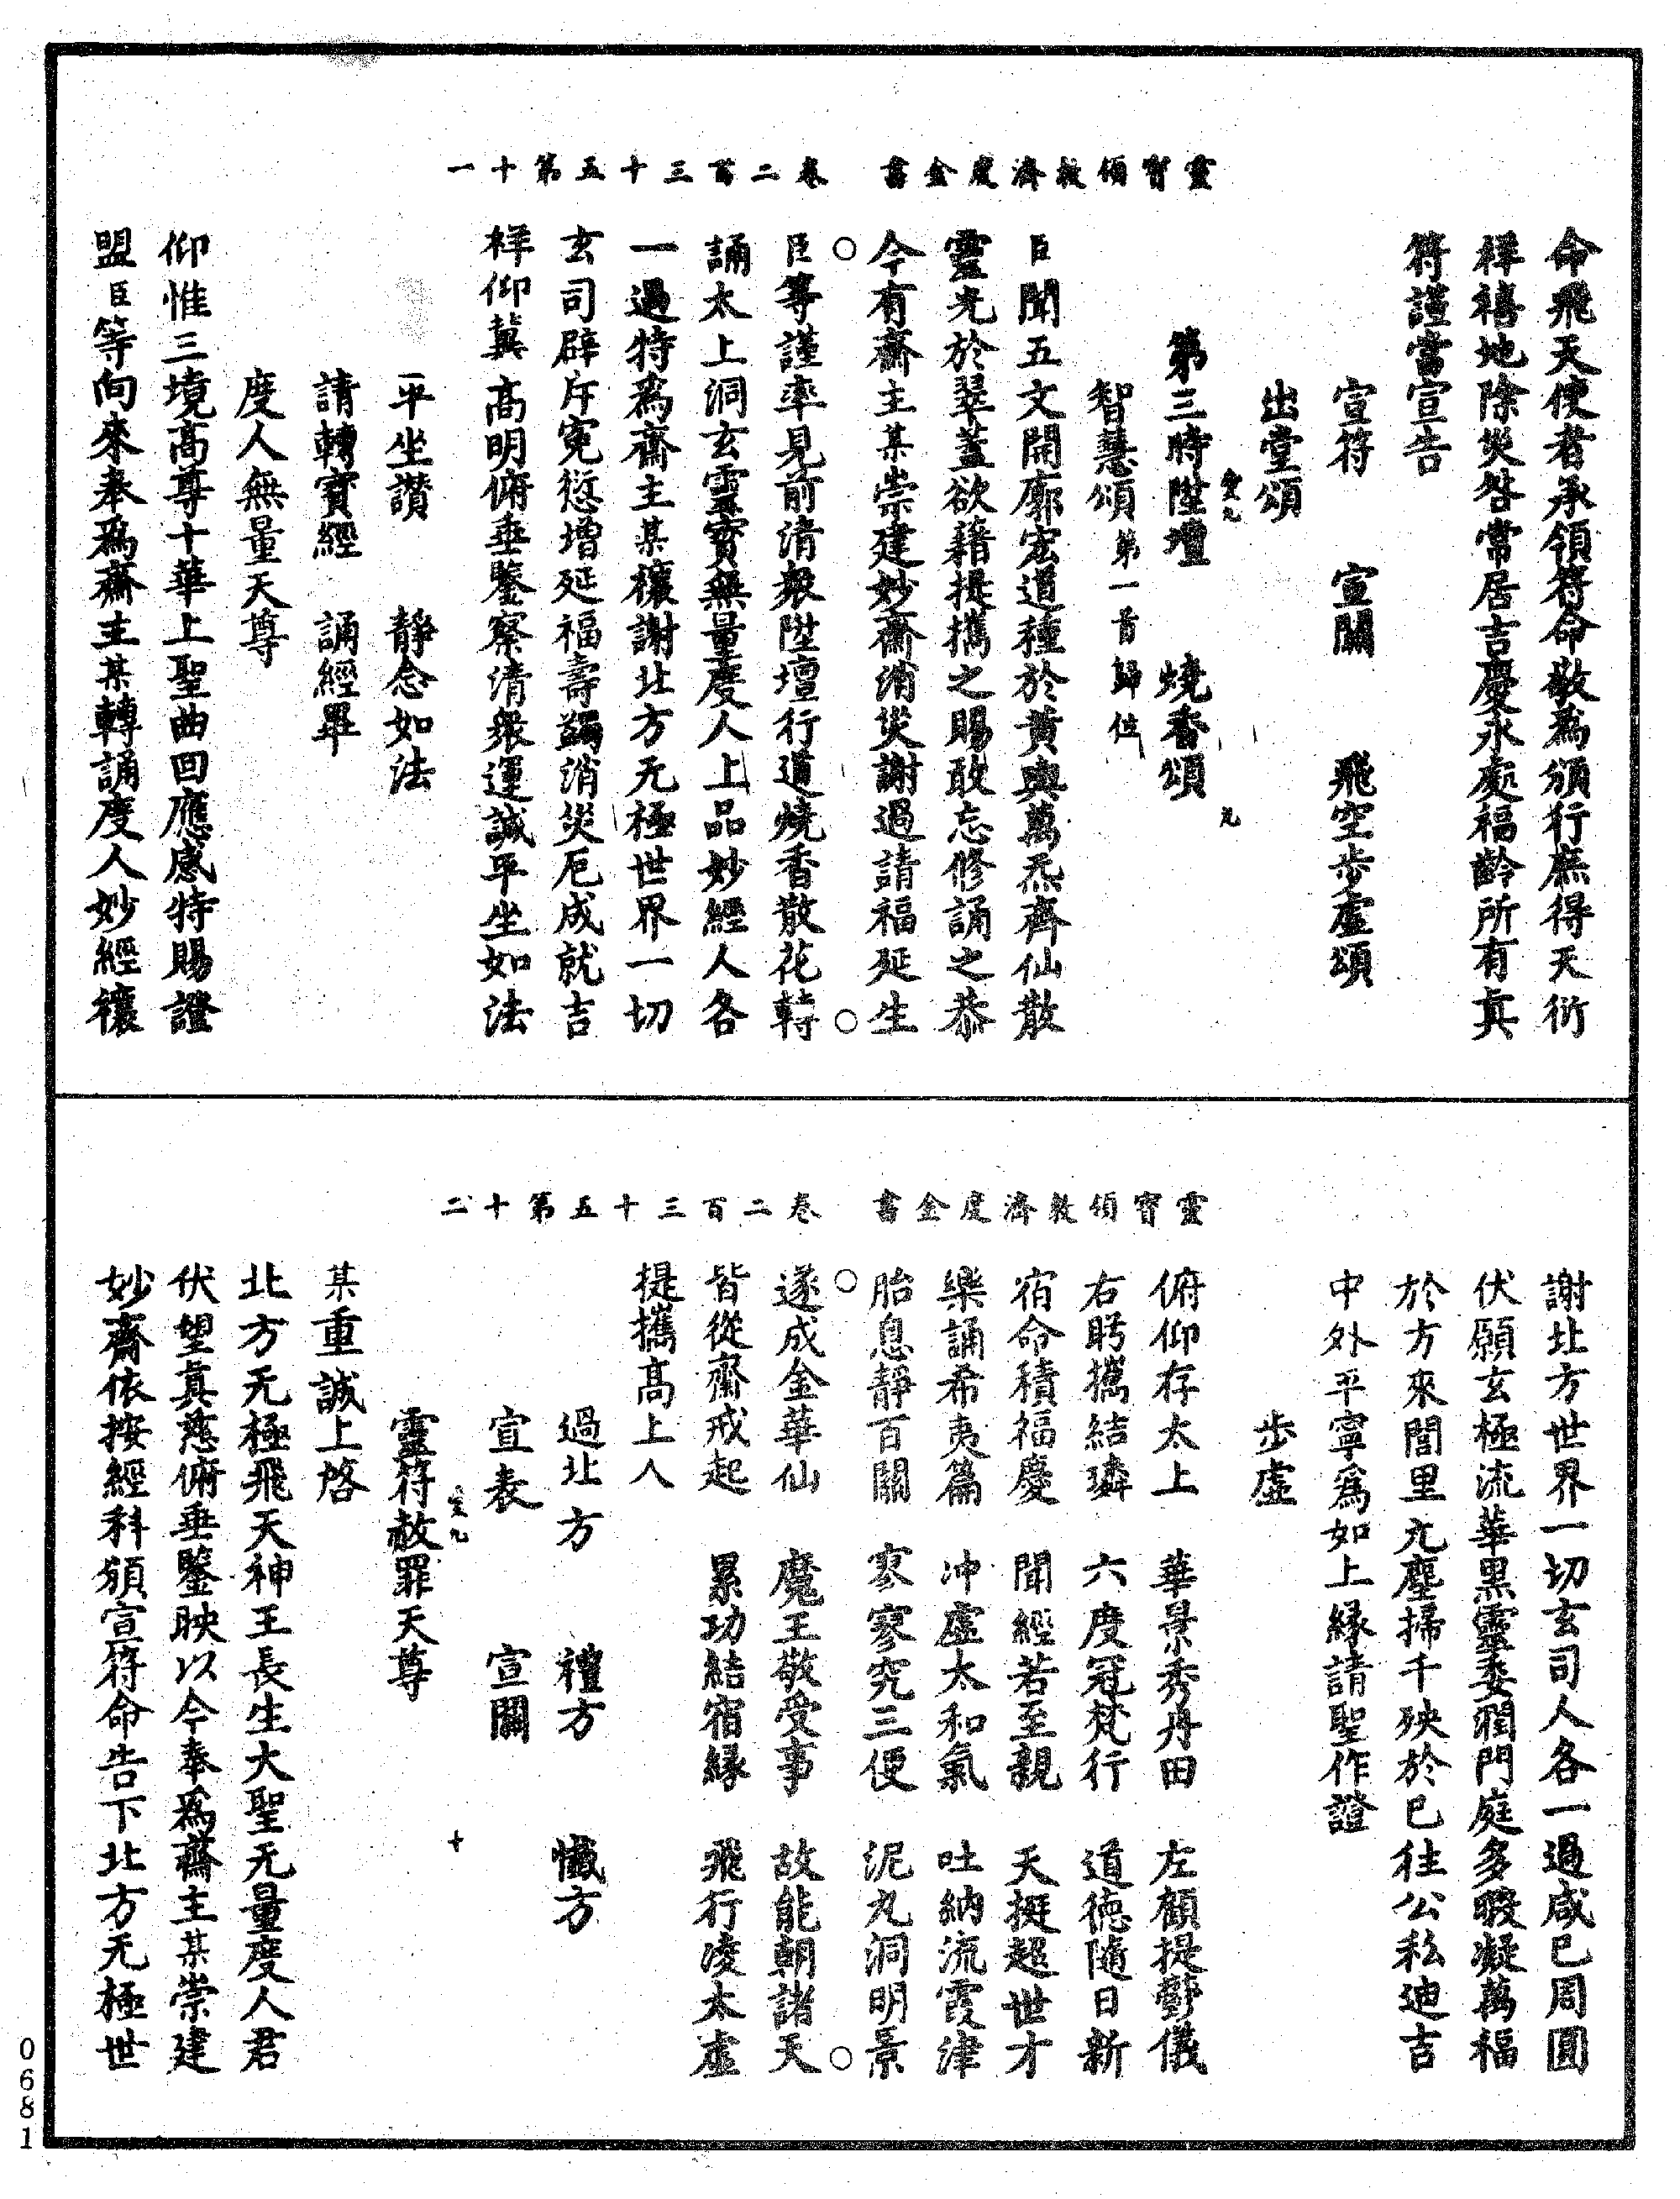 靈寶領教濟度金書　卷二百三十五第十一
命飛天使者承領符命敬爲頒行庶得天衍
祥禧地除災咎常居吉慶永處福齡所有真
符謹當宣告
宣符　宣關　飛空步虛頌
出堂頌
第三時陞壇　燒香頌
智慧頌第一首歸位
臣聞五文開廓宏道種於黃輿萬炁齊仙散
靈光於翠蓋欲藉提攜之賜敢忘修誦之恭
今有齋主某崇建妙齋消災謝過請福延生
臣等謹率見前清衆陞壇行道燒香散花轉
誦太上洞玄靈寶無量度人上品妙經人各
一過特爲齋主某禳謝北方无極世界一切
玄司辟斥寃愆增延福壽蠲消災厄成就吉
祥仰冀高明俯垂鑒察清衆運誠平坐如法
平坐讃　靜念如法
請轉寶經　誦經畢
度人無量天尊
仰惟三境高尊十華上聖曲回應感特賜證
盟臣等向來奉爲齋主某轉誦度人妙經禳
靈寶領教濟度金書　卷二百三十五第十二
謝北方世界一切玄司人各一過咸已周圓
伏願玄極流華黑靈委潤門庭多暇凝萬福
於方來閭里亢塵掃千殃於已往公私迪吉
中外平寧爲如上緣請聖作證
步虛
俯仰存太上　華景秀丹田　左顧提鬱儀
右眄攜結璘　六度冠梵行　道德隨日新
宿命積福慶　聞經若至親　天挺超世才
樂誦希夷篇　沖虛太和氣　吐納流霞津
胎息靜百關　寥寥究三便　泥丸洞明景
遂成金華仙　魔王敬受事　故能朝諸天
皆從齋戒起　累功結宿緣　飛行凌太虛
提攜高上人
過北方　禮方　懺方
宣表　宣關
靈符赦罪天尊
某重誠上啓
北方无極飛天神王長生大聖无量度人君
伏望真慈俯垂鑒映以今奉爲齋主某崇建
妙齋依按經科頒宣符命告下北方无極世
0681